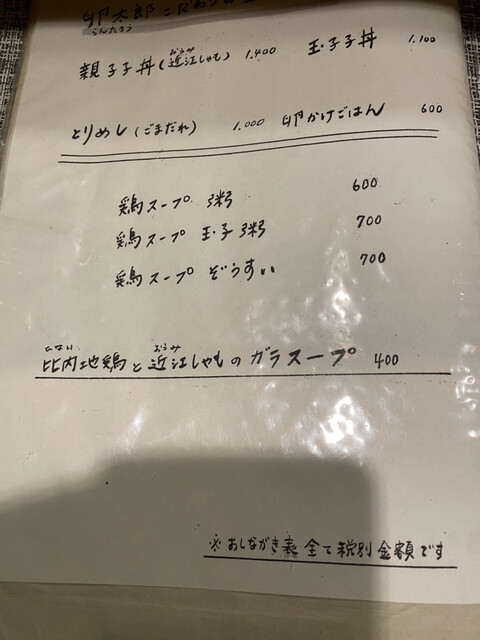 卵太郎こだわりの
らんたろう
おうみ
親子子丼(近江しゃも) 1.400 玉子子丼 1.100
とりめし(ごまだれ) 1.000 卵かけごはん 600
鶏スープ 粥 600
鶏スープ 玉子粥 700
鶏スープ ぞうすい 700
ひない おうみ
比内地鶏と近江しゃものガラスープ 400
※おしながき表 全て税別金額です